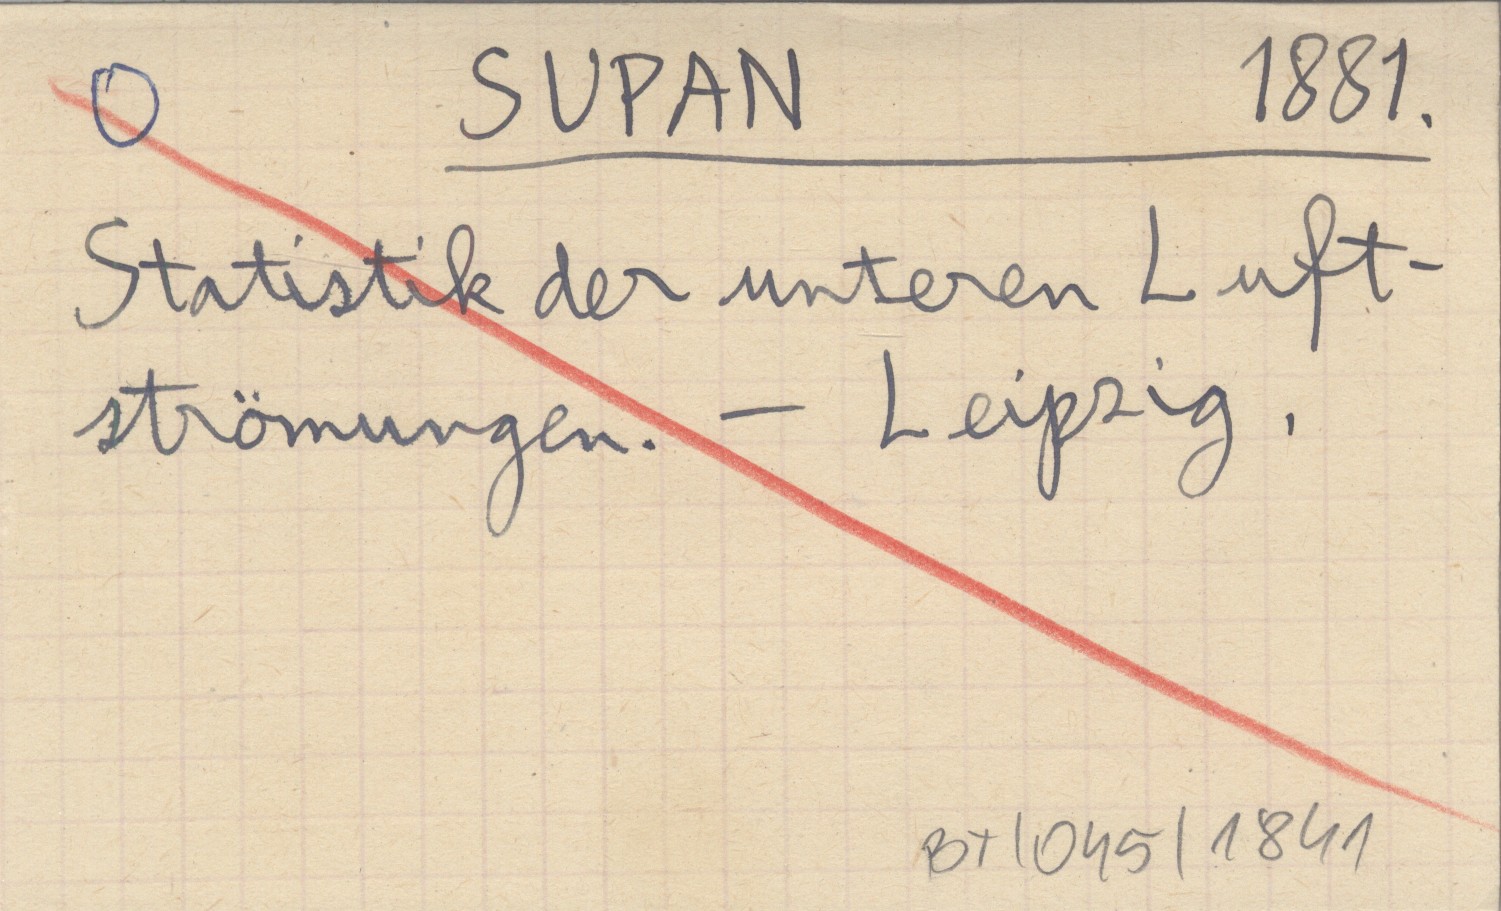 O SUPAN 1881.
Statistik der unteren Luft-
strömungen. — Leipzig.
BT/045/1841